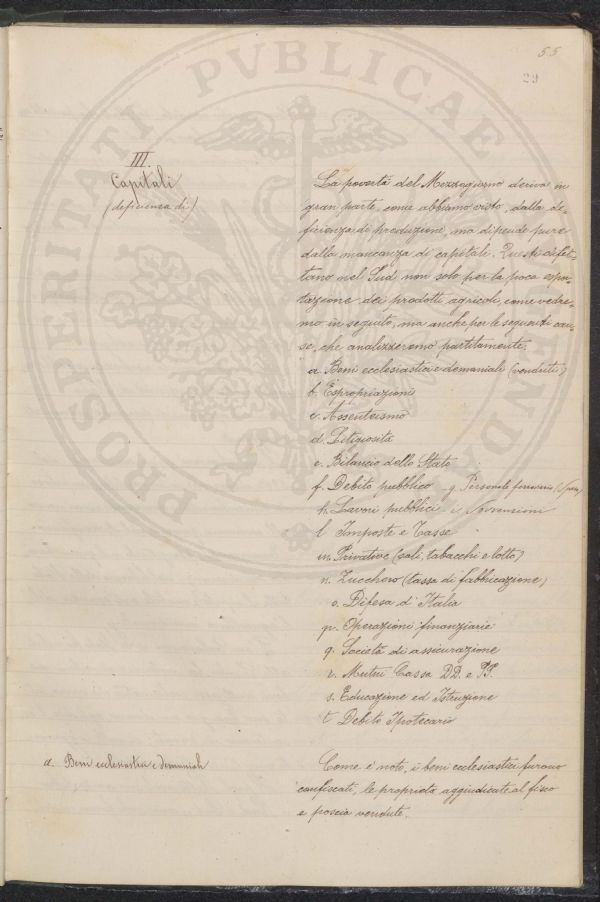 55
29
PRO PERITATI PVBLICAE
III.
Capitali
(deficienza di)
La povertà del Mezzogiorno deriva in
gran parte, come abbiamo visto, dalla de-
ficienza di produzione, ma dipende pure
dalla mancanza di capitale. Questi difet-
tano nel Sud non solo per la poca espor-
tazione dei prodotti agricoli, come vedre-
mo in seguito, ma anche per le seguenti cau-
se, che analizzeremo partitamente.
a Beni ecclesiastici e demaniali (venduti)
b. Espropriazioni
c. Assenteismo
d. Litigiosità
e. Bilancio dello Stato
f. Debito pubblico g. Personale ferroviario
h. Lavori pubblici i Sovvenzioni
l Imposte e Tasse
m. Privative (sali, tabacchi e lotto)
n. Zucchero (tassa di fabbricazione)
o. Difesa d'Italia
p. Operazioni finanziarie
q. Società di assicurazione
r. Mutui Cassa DD. e PP.
s. Educazione ed Istruzione
t Debito Ipotecario
a. Beni ecclesiastici e demaniali
Come è noto, i beni ecclesiastici furono
confiscati, le proprietà aggiudicate al fisco
e poscia vendute.